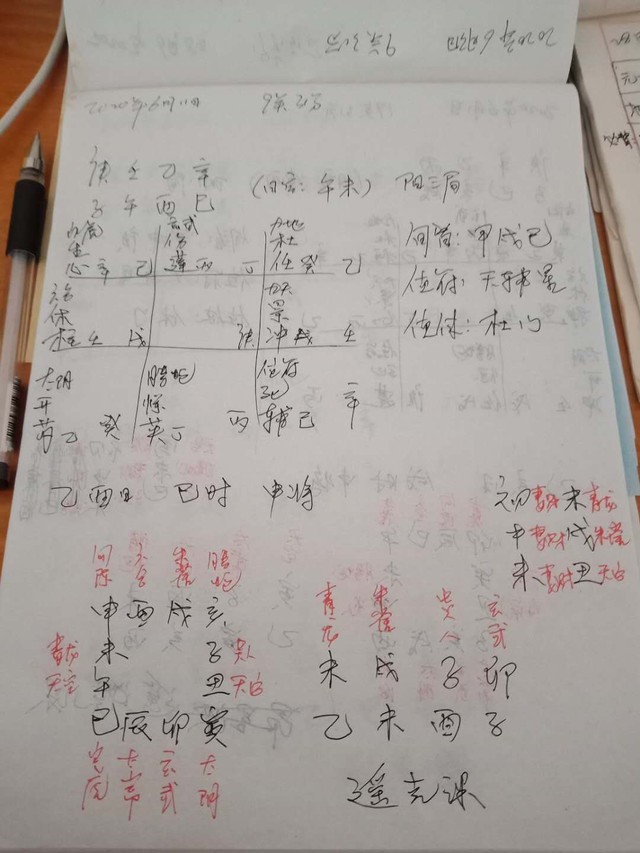 2020年6月11日
庚 壬 乙 辛
子 午 酉 巳
(旬空:午未) 阳三局
旬首:甲戌己
值符:天辅星
值使:杜门
白虎 玄武 九地
生 伤 杜
心 辛 己 蓬 丙 丁 任 癸 乙
六合 九天
休 景
柱 壬 戊 庚 冲 戊 壬
太阴 螣蛇 值符
开 惊 死
芮 乙 癸 英 丁 丙 辅 己 辛
乙酉日 巳时 申将
元初 妻财 未 青龙
中 妻财 戌 朱雀
末 妻财 丑 天后
勾陈 六合 朱雀 螣蛇
申 酉 戌 亥
青龙 未 子 贵人
天空 午 丑 天后
巳 辰 卯 寅
白虎 太常 玄武 太阴
青龙 朱雀 贵人 玄武
未 戌 子 卯
乙 未 酉 子
遥克课